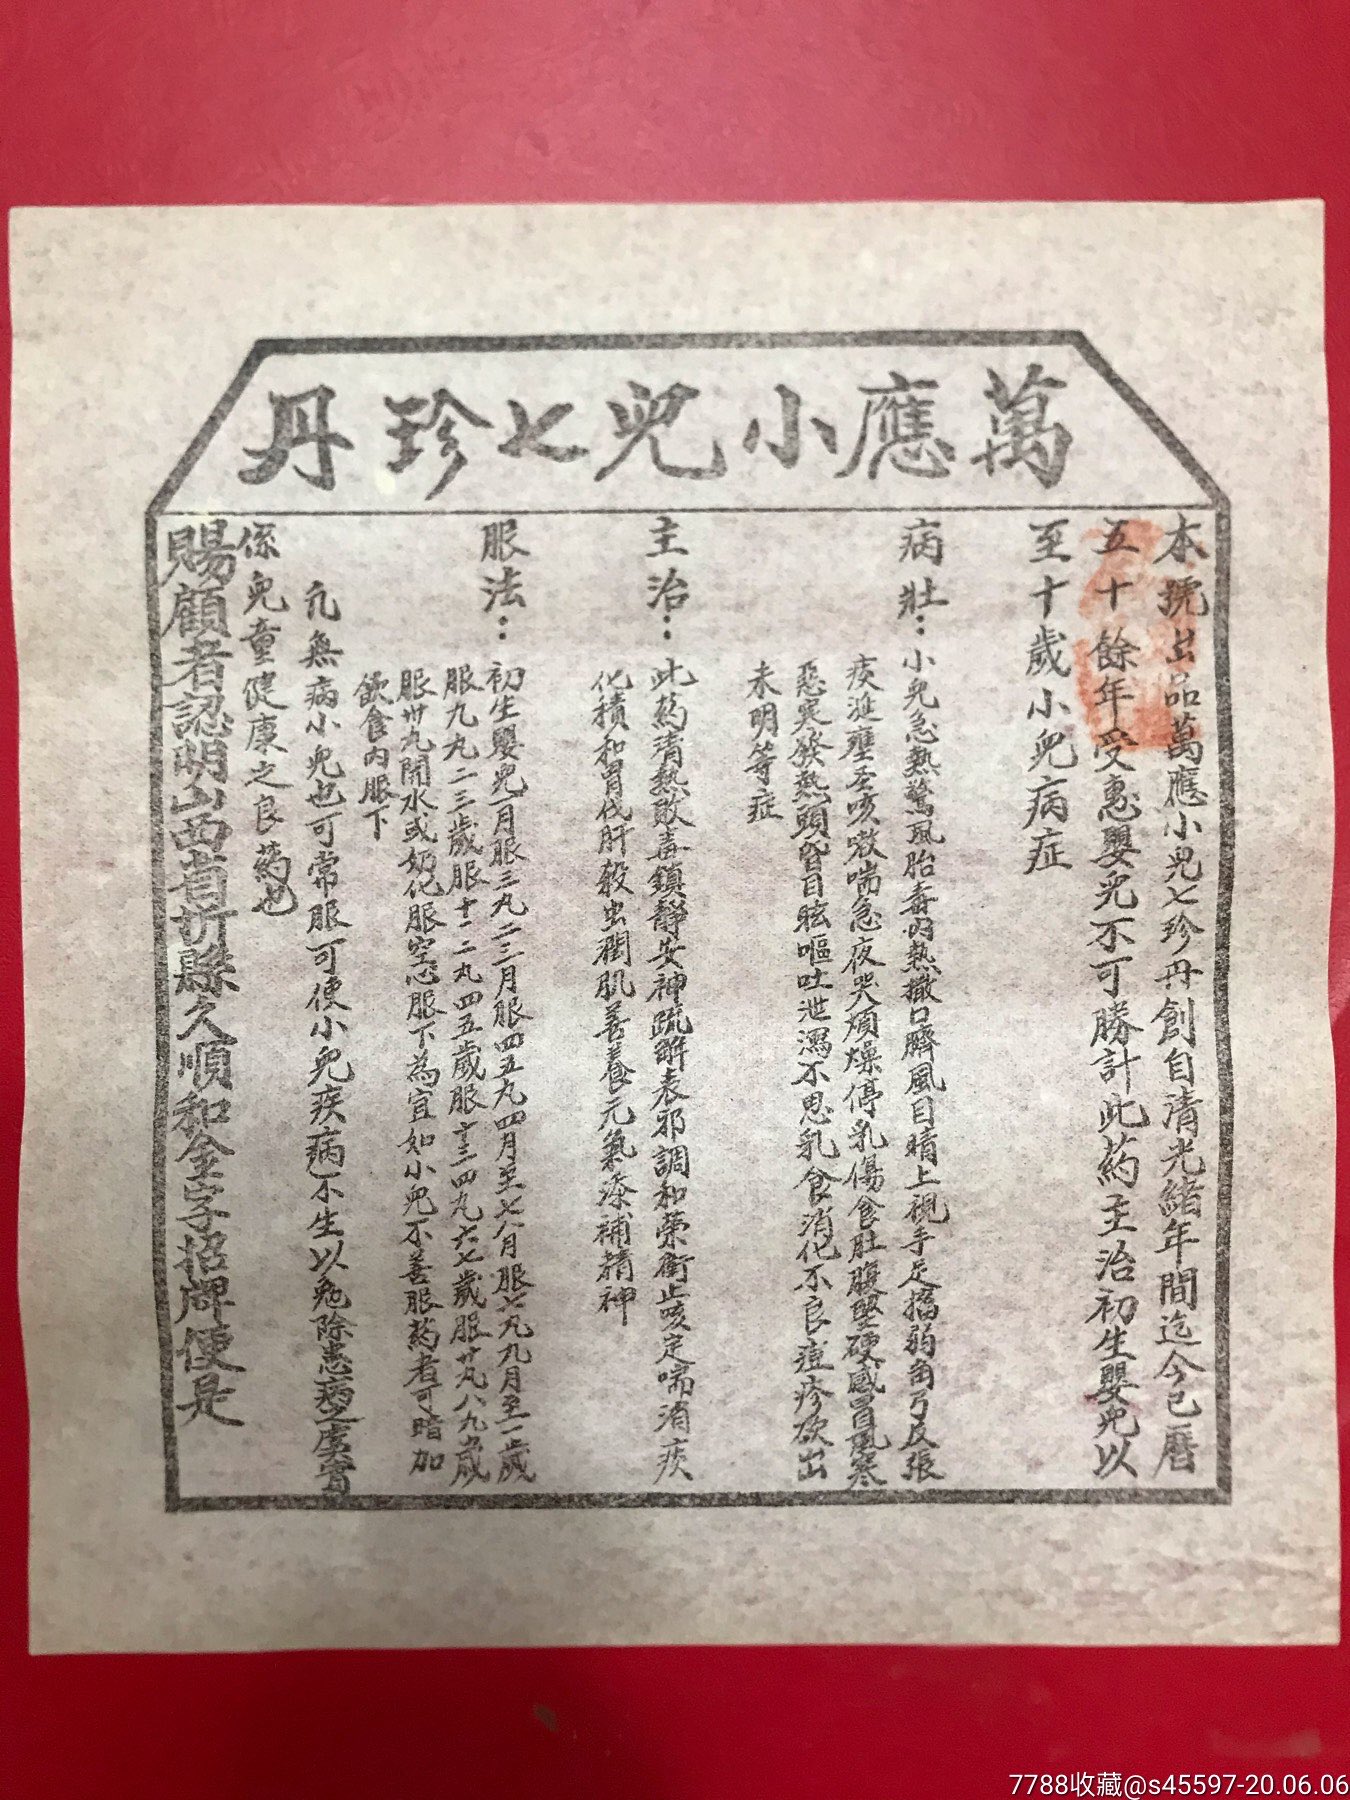 萬應小兒七珍丹
本號出品萬應小兒七珍丹創自清光緒年間迄今已曆
五十餘年受惠嬰兒不可勝計此药主治初生嬰兒以
至十歲小兒病症
病壯：小兒急熱驚風胎毒內熱撒口臍風目睛上視手足搐弱角弓反張
痰涎壅盛咳嗽喘急夜哭煩燥停乳傷食肚腹堅硬感冒風寒
惡寒發熱頭昏目眩嘔吐泄瀉不思乳食消化不良痘疹欲出
未明等症
主治：此药清熱散毒鎮靜安神疏解表邪調和榮衛止咳定喘消痰
化積和胃伐肝殺虫潤肌善養元氣添補精神
服法：初生嬰兒一月服三丸二三月服四五丸四月至七八月服七丸九月至一歲
服九丸二三歲服十二丸四五歲服十三四丸六七歲服廿丸八九歲
服卅丸開水或奶化服空心服下為宜如小兒不善服药者可暗加
飲食內服下
凡無病小兒也可常服可使小兒疾病不生以免除患病之虞實
係兒童健康之良药也
賜顧者認明山西省折縣久順和金字招牌便是
7788收藏@s45597-20.06.06